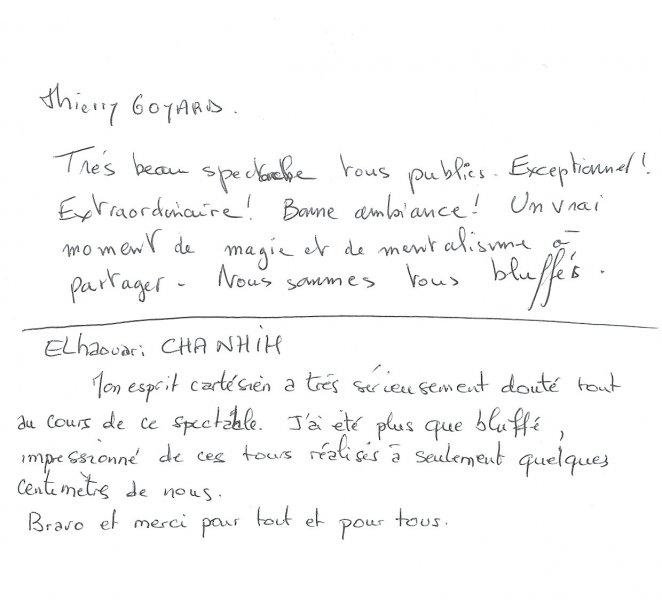 Thierry GOYARD.
Très beau spectacle tous publics. Exceptionnel!
Extraordinaire! Bonne ambiance! Un vrai
moment de magie et de mentalisme à
partager - Nous sommes tous bluffés.
ELhaouari CHANHIH
Mon esprit cartésien a très sérieusement douté tout
au cours de ce spectable. J'ai été plus que bluffé,
impressionné de ces tours réalisés à seulement quelques
centimetrs de nous.
Bravo et merci pour tout et pour tous.